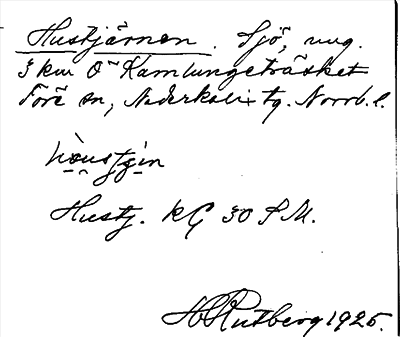 Hustjärnen. Sjö, ung.
3 km Ö Kamlungeträsket
Töre sn, Nederkalix tg. Norrb. l.
Hustj. KG 30 S M.
H Rutberg 1925.